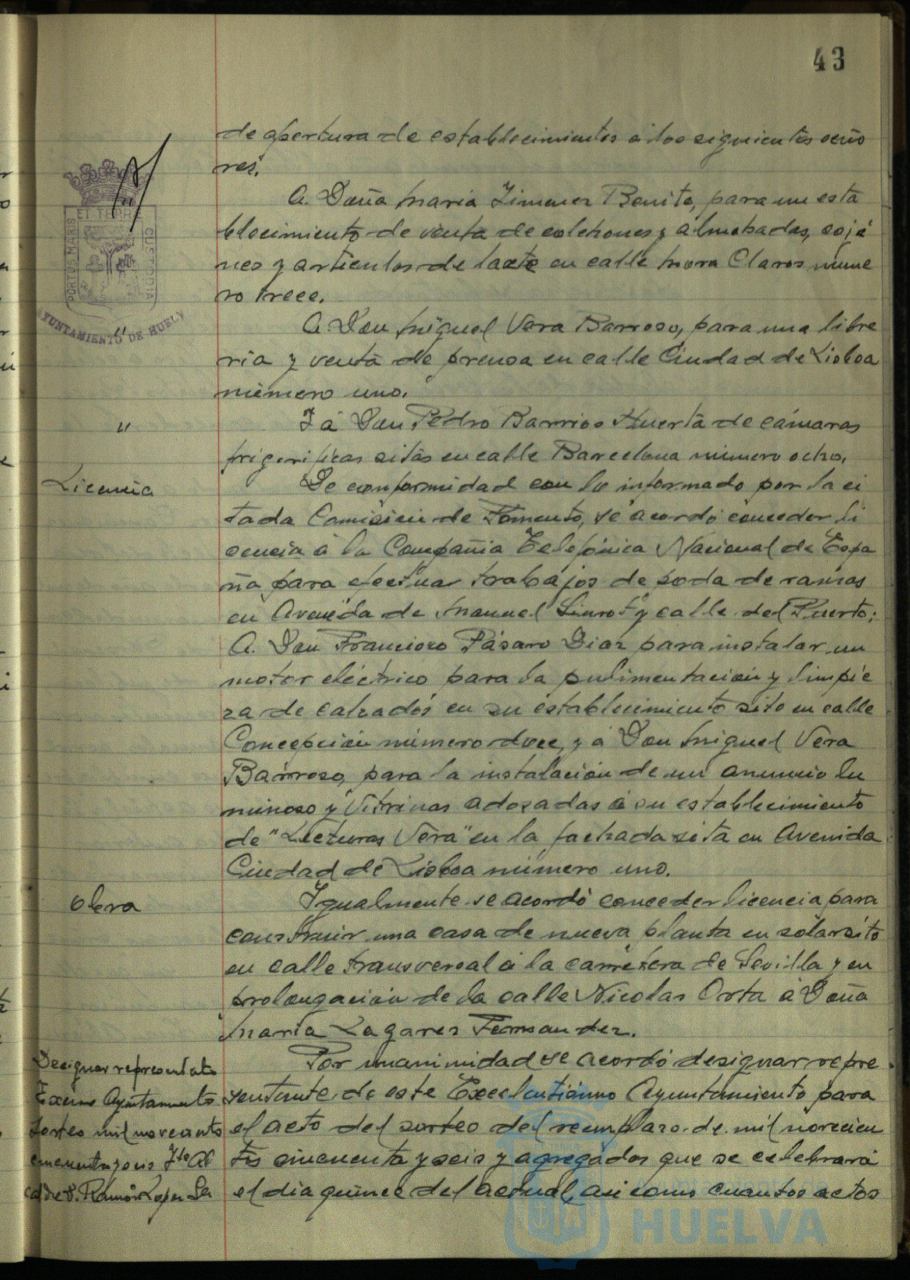 43
de apertura de establecimientos á los siguientes seño
res.
A Doña María Jimenez Benito, para un esta
blecimiento de venta de colchones y almohadas, sojá
neos y articulos de lacte en calle Mora Claros núme
ro trece.
"
A Don Miguel Vera Barroso, para una libre
ría y venta de prensa en calle Ciudad de Lisboa
número uno.
"
Y á Don Pedro Barrios Huerta de cámaras
frigoríficas sitas en calle Barcelona número ocho.
Licencia
De conformidad con lo informado por la ci
tada Comisión de Fomento, se acordó conceder li
cencia á la Compañia Telefónica Nacional de Espa
ña para efectuar trabajos de poda de ramas
en Avenida de Manuel Siurot y calle del Puerto;
A Don Francisco Pásaro Diaz para instalar un
motor eléctrico para la pulimentación y limpie
za de calzados en su establecimiento sito en calle
Concepción número doce, y á Don Miguel Vera
Barroso, para la instalación de un anuncio lu
minoso y Vitrinas adosadas á su establecimiento
de "Lecturas Vera" en la fachada sita en Avenida
Ciudad de Lisboa número uno.
Obra
Igualmente se acordó conceder licencia para
construir una casa de nueva planta en solar sito
en calle transversal á la carretera de Sevilla y en
prolongación de la calle Nicolas Orta á Doña
María Lagares Fernandez.
Designar representate
Excmo Ayuntamiento
Sorteo mil noveciento
cincuenta y seis Tte Al
calde S. Ramón Lopez
Por unanimidad se acordó designar repre
sentante de este Excelentísimo Ayuntamiento para
el acto del sorteo del reemplazo de mil novecien
tos cincuenta y seis y agregados que se celebrará
el dia quince del actual, asi como cuantos actos
PORTUS MARIS ET TERRÆ CUSTODIA
AYUNTAMIENTO DE HUELVA
Ayuntamiento de
HUELVA